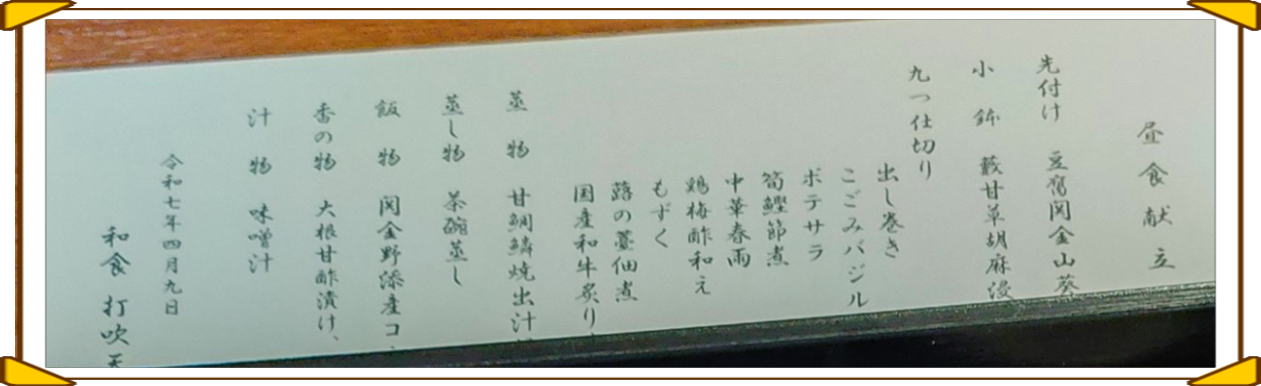 昼食献立
先付け 豆腐関金山葵
小鉢 籔甘草胡麻浸
九つ仕切り
出し巻き
こごみバジル
ポテサラ
筍鰹節煮
中華春雨
鶏梅酢和え
もずく
蕗の薹佃煮
国産和牛炙り
蒸物 甘鯛鱗焼出汁
蒸し物 茶碗蒸し
飯物 関金野添産コ
香の物 大根甘酢漬け、
汁物 味噌汁
令和七年四月九日
和食 打吹天